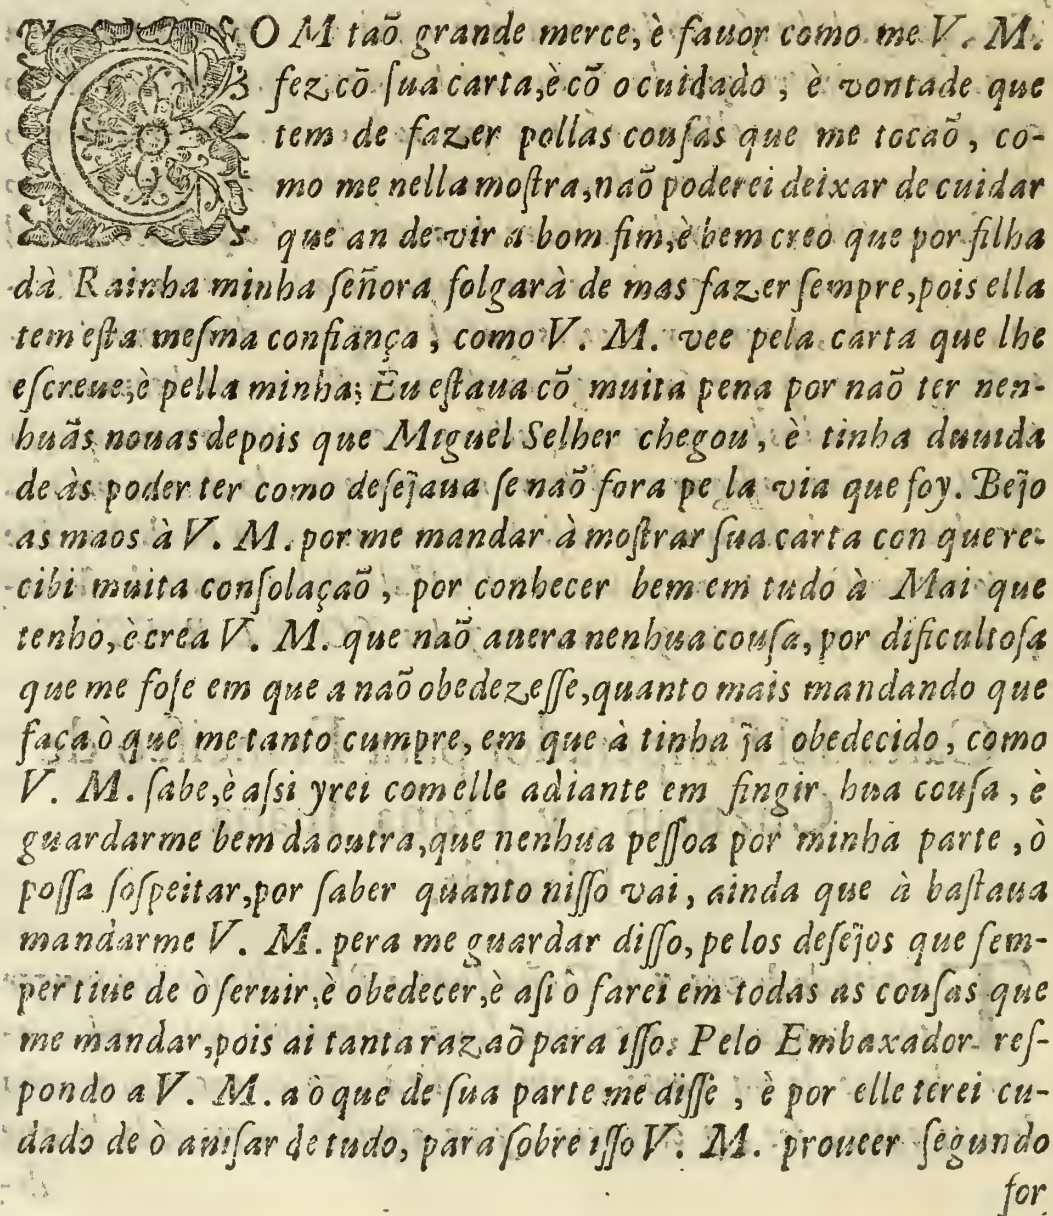 CO M taõ grande merce, è fauor como me V. M.
fez cõ ſua carta, è cõ o cuidado, è vontade que
tem de fazer pollas couſas que me tocaõ, co-
mo me nella moſtra, naõ poderei deixar de cuidar
que an de vir a bom fim, è bem creo que por filha
dà Rainha minha ſeñora folgarà de mas fazer ſempre, pois ella
tem eſta meſma confiança, como V. M. vee pela carta que lhe
eſcreue, è pella minha; Eu eſtaua cõ muita pena por naõ ter nen-
huãs nouas depois que Miguel Selher chegou, è tinha duuida
de às poder ter como deſejaua ſe naõ fora pe la via que foy. Bejo
as maos à V. M. por me mandar à moſtrar ſua carta con que re-
cibi muita conſolaçaõ, por conhecer bem em tudo à Mai que
tenho, è crea V. M. que naõ auera nenhua couſa, por dificultoſa
que me foſe em que a naõ obedezeſſe, quanto mais mandando que
faça ò que me tanto cumpre, em que à tinha ja obedecido, como
V. M. ſabe, è aſsi yrei com elle adiante em fingir hua couſa, è
guardarme bem da outra, que nenhua peſſoa por minha parte, ò
poſſa ſoſpeitar, por ſaber quanto niſſo vai, ainda que à baſtaua
mandarme V. M. pera me guardar diſſo, pe los deſejos que ſem-
per tiue de ò ſeruir, è obedecer, è aſi ò farei em todas as couſas que
me mandar, pois ai tanta razaõ para iſſo: Pelo Embaxador reſ-
pondo a V. M. a ò que de ſua parte me diſſe, è por elle terei cu-
dado de ò auiſar de tudo, para ſobre iſſo V. M. proueer ſegundo
for